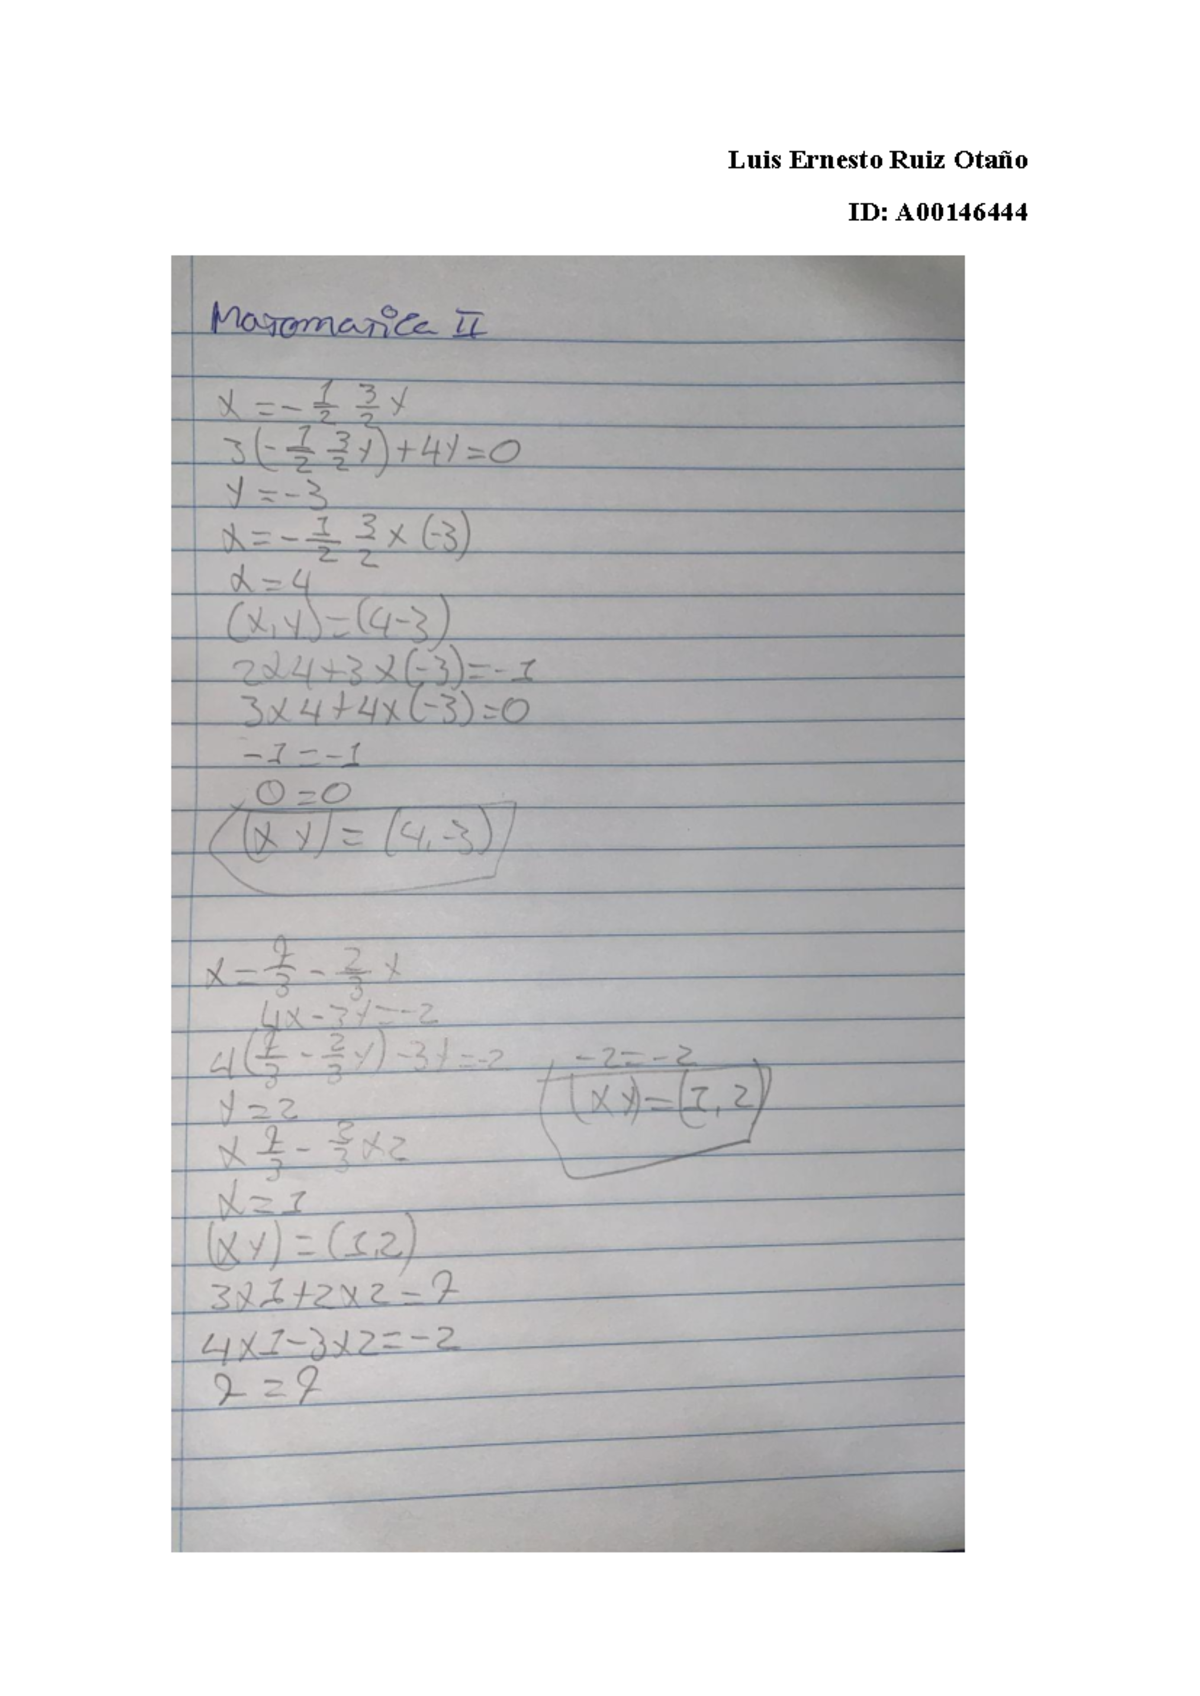 Luis Ernesto Ruiz Otaño
ID: A00146444
Matematica II
x = - 1/2 3/2 y
3(- 1/2 3/2 y) + 4y = 0
y = -3
x = - 1/2 3/2 x (-3)
x = 4
(x, y) = (4-3)
2x4+3x(-3)=-1
3x4+4x(-3)=0
-1=-1
0=0
(x y) = (4,-3)
x = 7/3 - 2/3 y
4x-3y=-2
4(7/3 - 2/3 y) -3y=-2
y=2
x 7/3 - 2/3 x2
x=1
(x y) = (1,2)
3x1+2x2=7
4x1-3x2=-2
7=7
-2=-2
(x y)=(1,2)